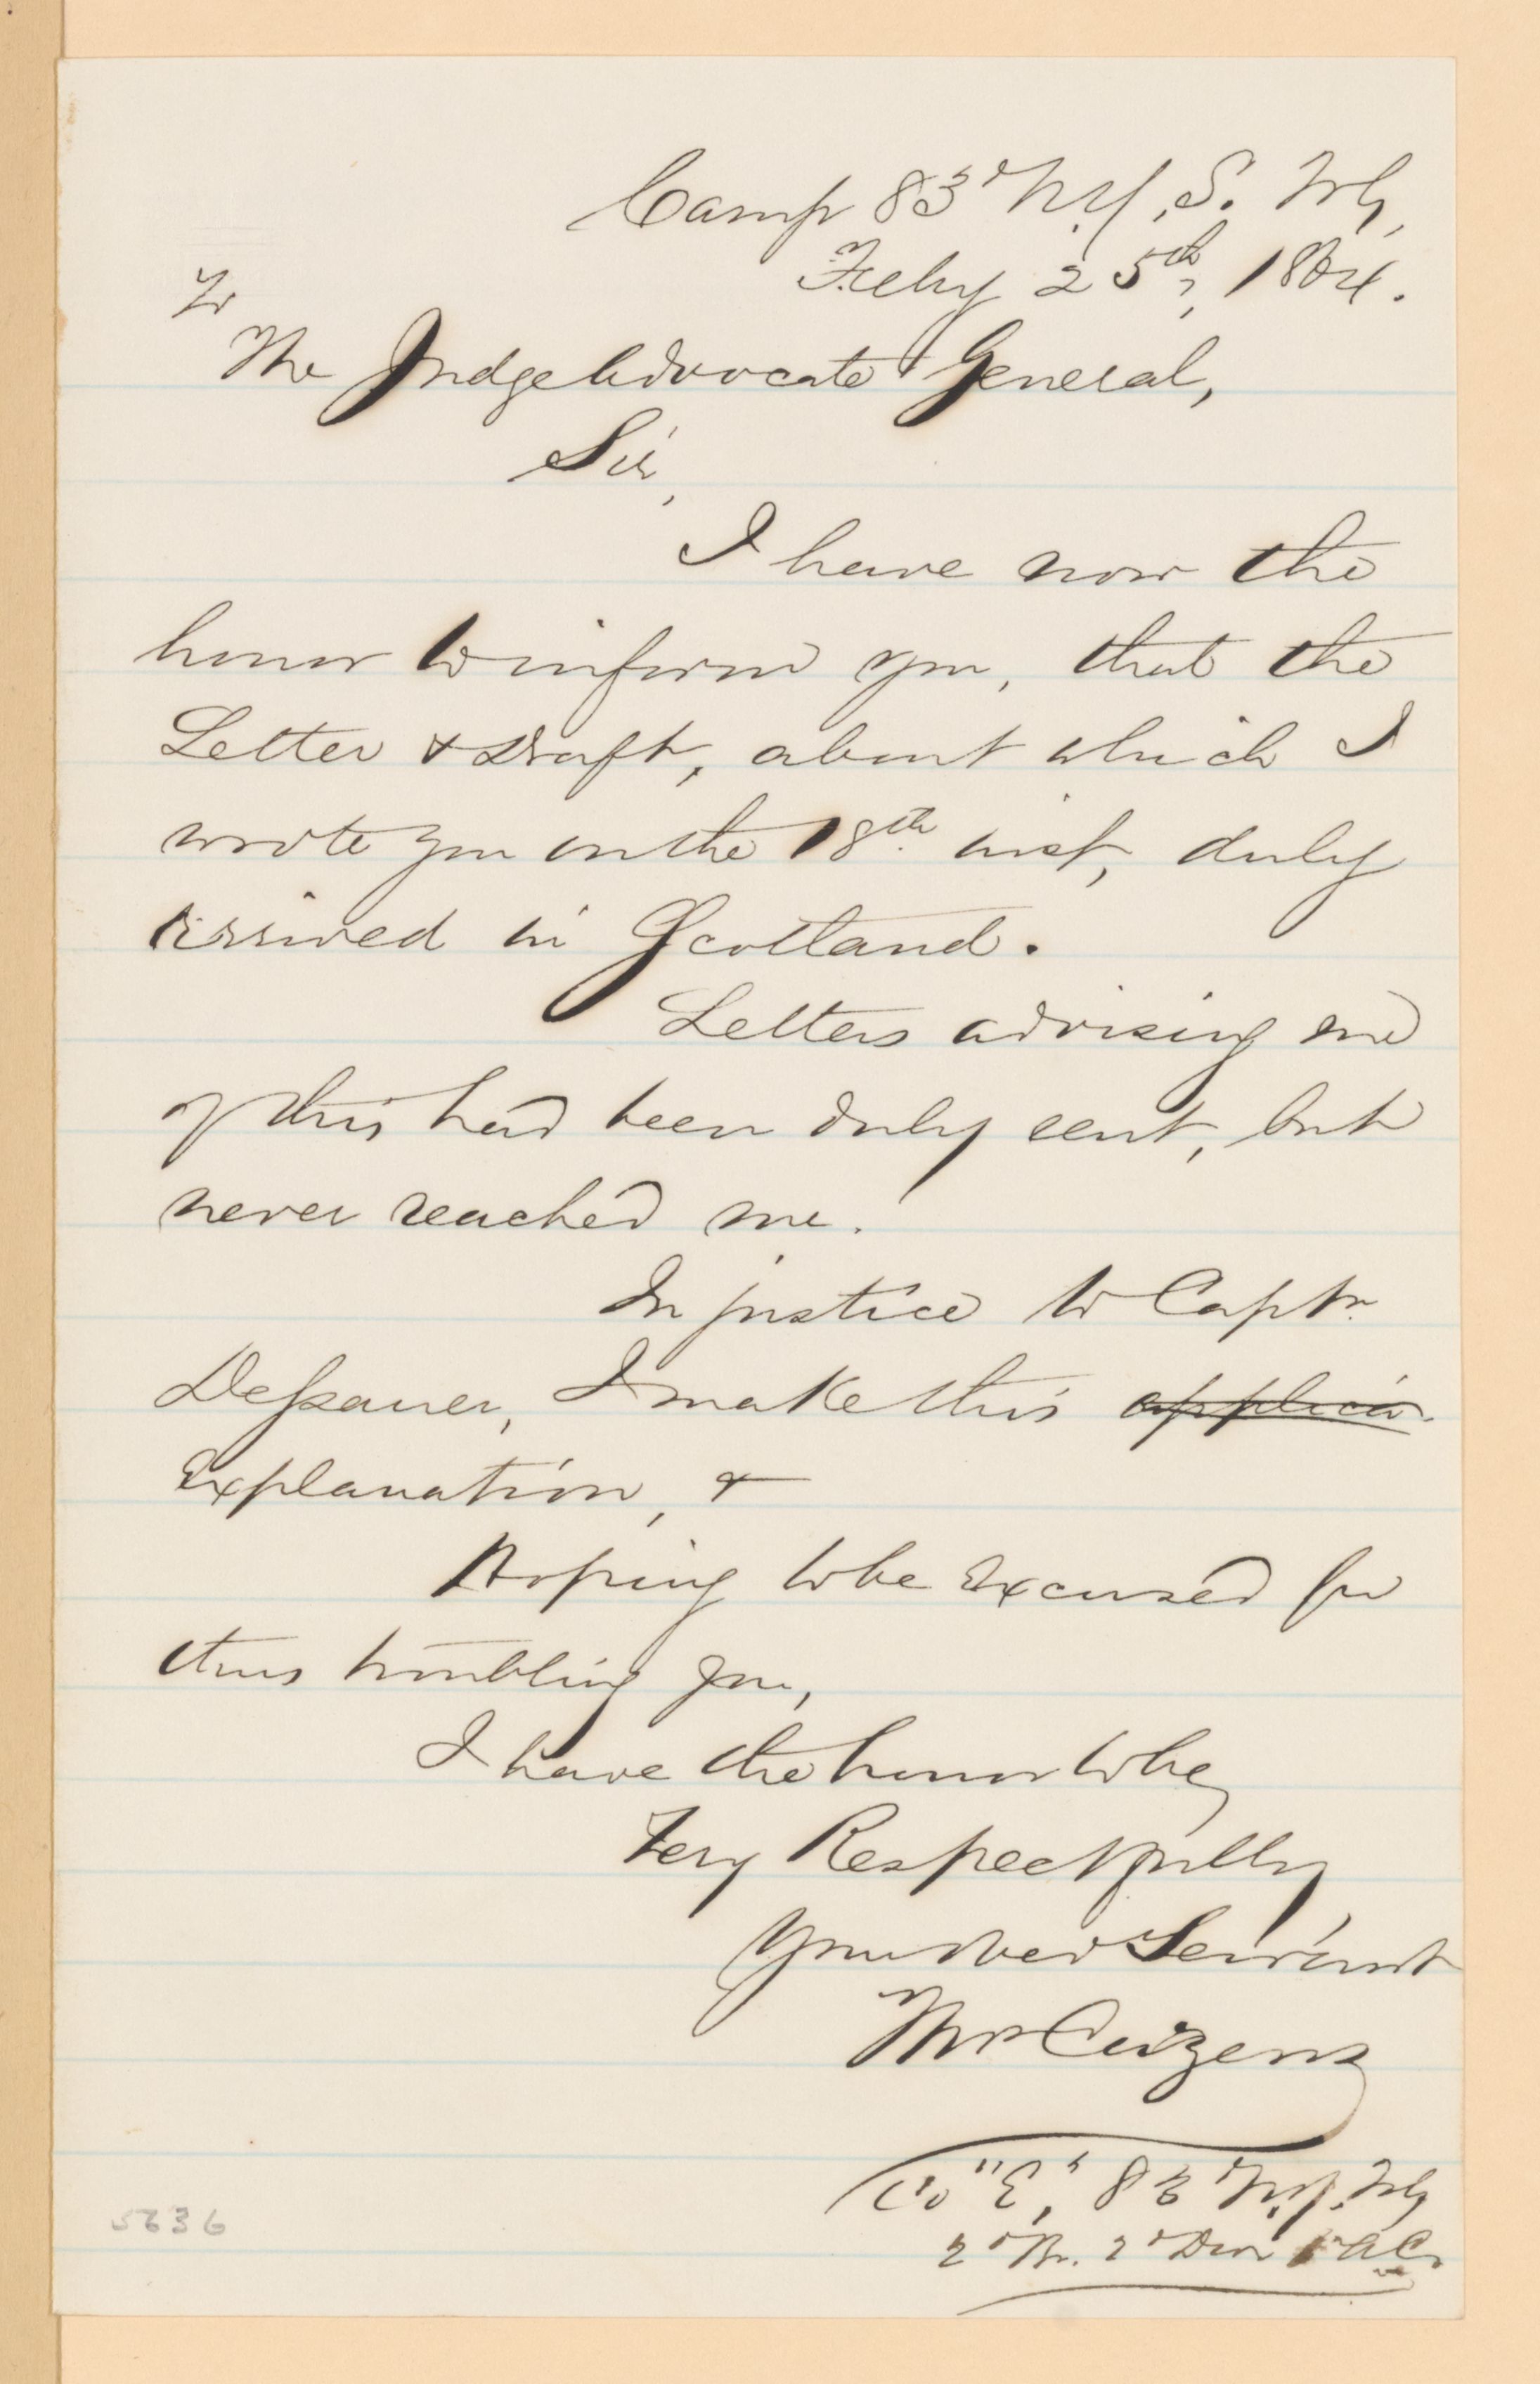 Camp 83d N.Y.S. Vls,
Feby 25th, 1864.
To
The Judge Advocate General,
Sir,
I have now the
honor to inform you, that the
Letter & Draft, about which I
wrote you on the 18th inst, duly
arrived in Scotland.
Letters advising me
of this had been duly sent, but
never reached me.
In justice to Captn
Dessauer, I make this applica.
Explanation, &
Hoping to be Excused for
thus troubling you,
I have the honor to be,
Very Respectfully,
Your obed Servant
Co "E", 83d N.Y. Vls
2d Br. 2d Divn 1st A.C.
5636